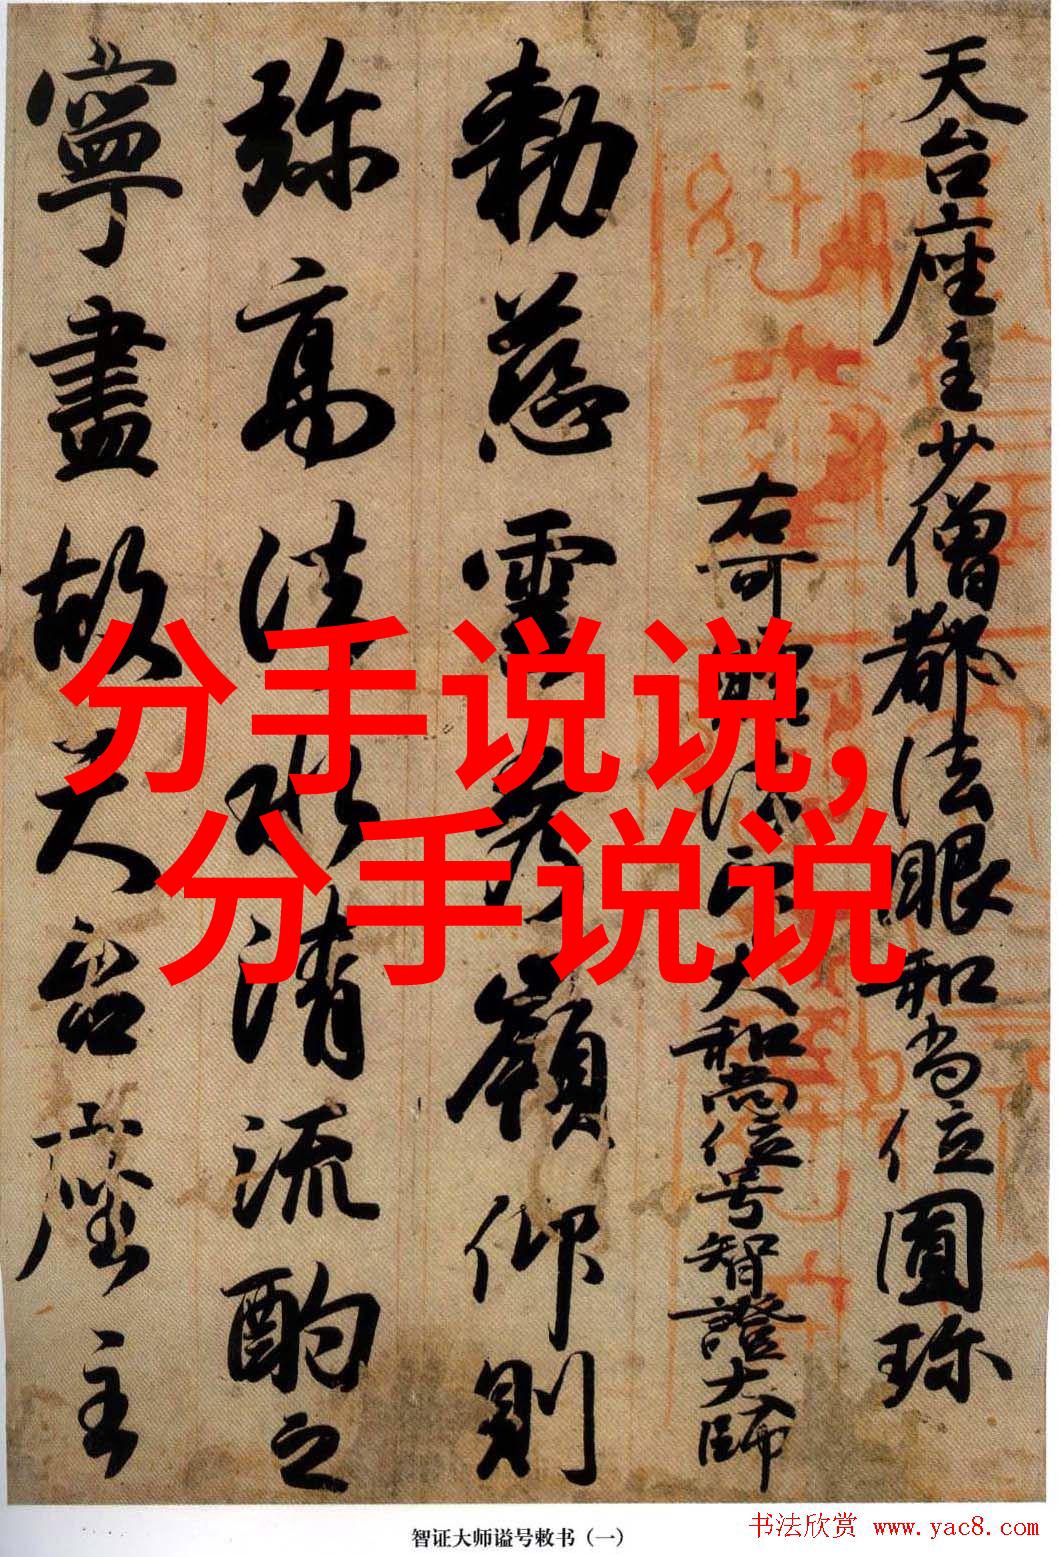 天台座主少僧都法眼和尚位圓珎
右可贈法印大和尚位号智證大師
勅慈雲秀嶺仰則
弥高法水清流酌之
寧盡故天台座主
分手说说,
分手说说
智证大师谥号敕书（一）
书法欣赏 www.yac8.com